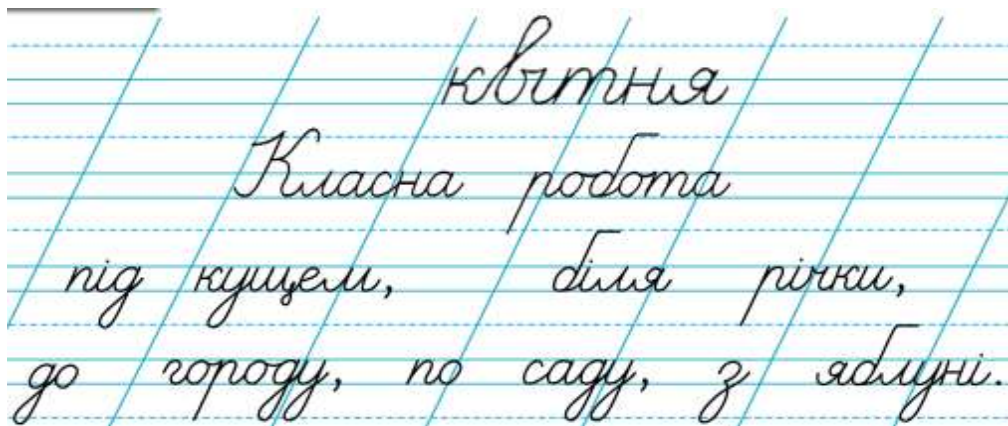 квітня
Класна робота
під кущем, біля річки,
до городу, по саду, з яблуні.